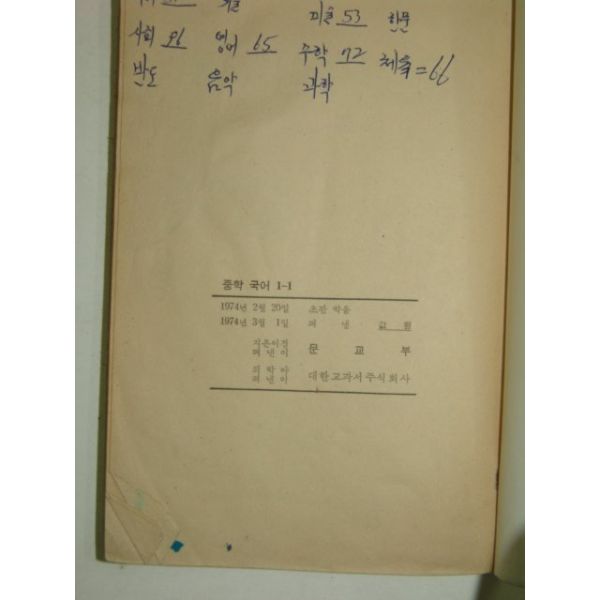 미술 53 한문
사회 96 영어 65 수학 72 체육=66
반도 음악 과학
중학 국어 1-1
1974년 2월 20일 초판 박음
1974년 3월 1일 펴 냄 값 원
지은이겸
펴낸이 문 교 부
펴낸이 대한교과서주식회사